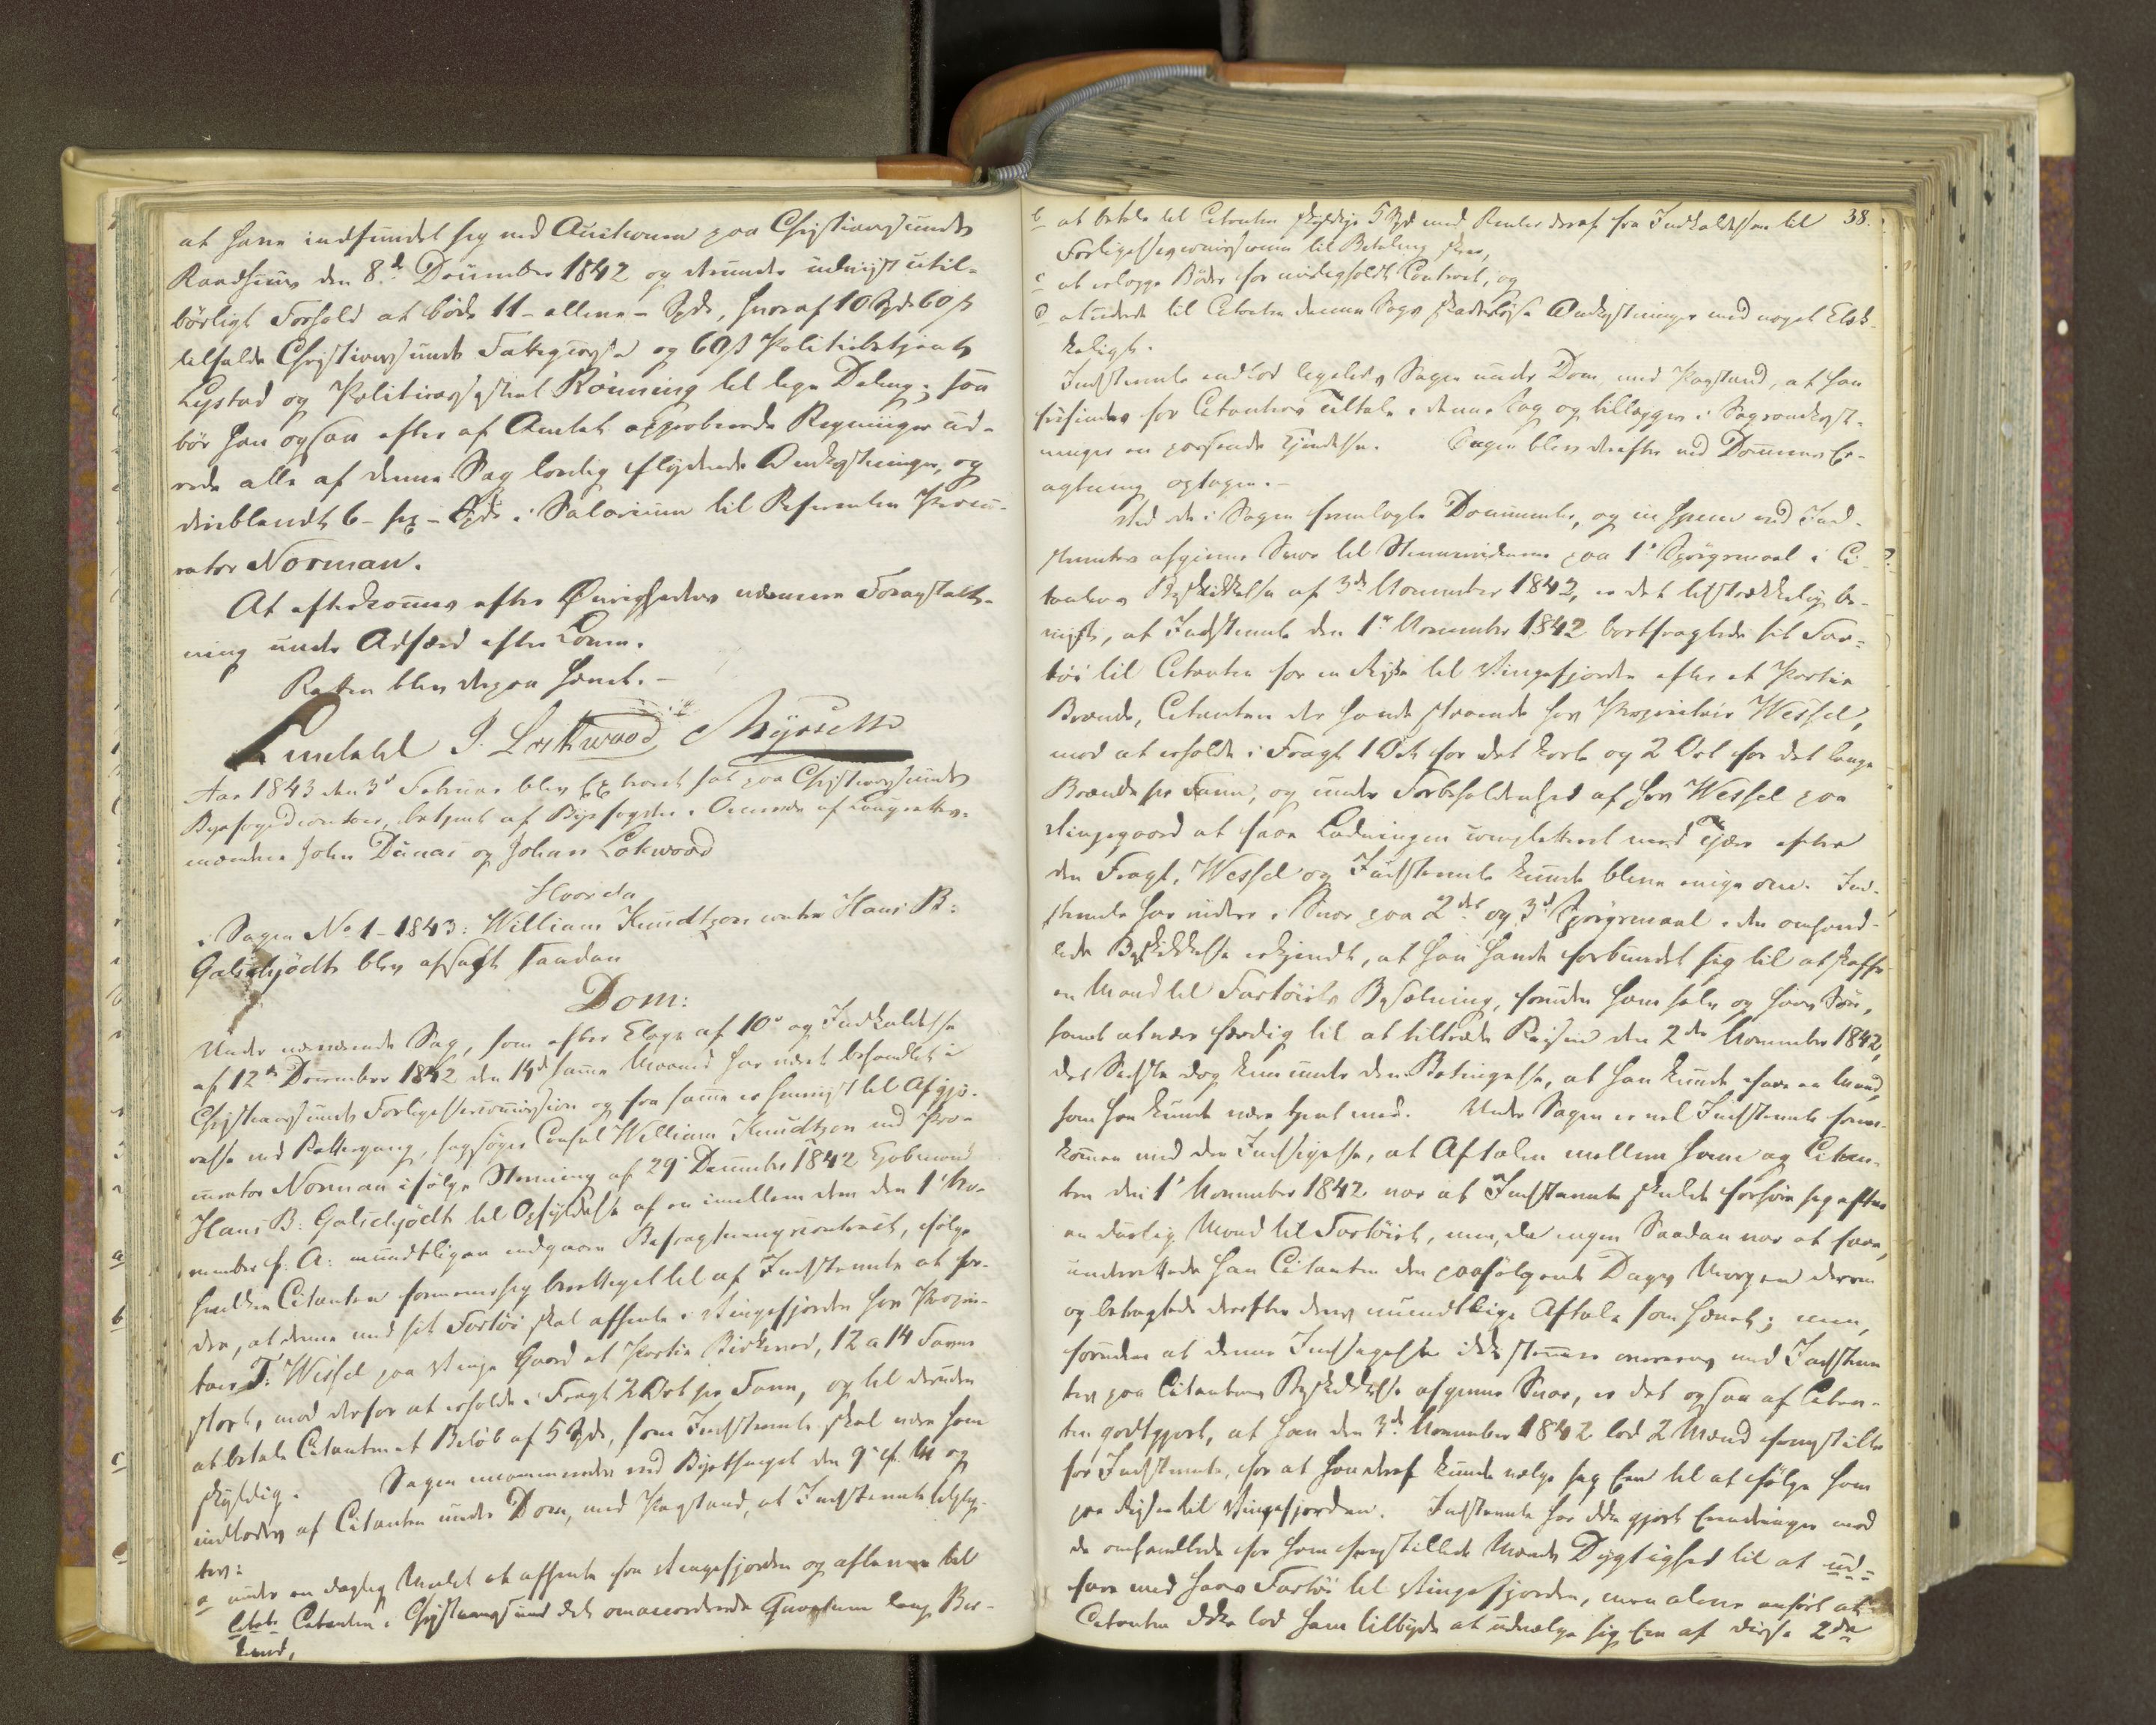 at have indfundet sig ved Auctionen paa Christiansunds
Raadhuus den 8de December 1842 og derunder udviist util-
børligt Forhold at bøde 11 - elleve - Spd, hvoraf 10 Spd 60 s
tilfalde Christiansunds Fattigcasse og 60 s Politiebetjent
Lystad og Politieassistent Rønning til lige Deling; saa
bør han ogsaa efter af Amtet approberede Regninger ud-
rede alle af denne Sag lovlig flydende Omkostninger, og
deriblandt 6 - sex - Spd i Salarium til Referenten Procu-
rator Norman.
At efterkommes efter Øvrighedens nærmere Foranstalt-
ning under Adfærd efter Loven.
Retten blev derpaa hævet. -
Lindahl J. Lokwood
Aar 1843 den 3d Februar blev Extraret sat paa Christiansunds
Byefogedcontoir, betjent af Byefogden i Overvær af Laugrettes-
mændene John Dünas og Johan Lokwood
Hvorda
i Sagen No 1 - 1843: William Knudtzon contra Hans B:
Galschjødt blev afsagt saadan
Dom:
Under nærværende Sag, som efter Klage af 10de og Indkaldelse
af 12te December 1842 den 14de samme Maaned har været behandlet i
Christiansunds Forligelsescommission og fra samme er henviist til Afgjø-
relse ved Rettergang, sagsøger Consul William Knudtzon ved Pro-
curator Norman ifølge Stevning af 29de December 1842 Kjøbmand
Hans B: Galschjødt til Opfyldelse af en imellem dem den 1ste No-
vember f. A: mundtligen indgaaen Befragtningscontract, ifølge
hvilken Citanten formener sig berettiget til af Indstevnte at for-
dre, at denne med sit Fartøi skal afhente i Stingefjorden hos Proprie-
tair T: Wessel paa Stinge Gaard et Partie Birkeved, 12 a 14 Favne
stort, mod derfor at erholde i Fragt 2 Ort pr Favn, og til desuden
at betale Citanten et Beløb af 5 Spd, som Indstevnte skal være ham
skyldig. Sagen incamineredes ved Byethinget den 9de f. M. og
indlodes af Citanten under Dom, med Paastand, at Indstevnte tilplig-
tes:
a under en daglig Mulct at afhente fra Stingefjorden og aflevere til
Citanten i Christiansund det omaccorderede Qvantum lang Bir-
keved,
38.
b at betale til Citanten skyldige 5 Spd med Renter deraf fra Indkaldelsen til
Forligelsescommissionen til Betaling skeer,
c at erlægge Bøder for uvedholdt Contract, og
d at udrede til Citanten denne Sags skadesløse Omkostninger med noget Klæk-
keligt.
Indstevnte indlod ligeledes Sagen under Dom, med Paastand, at han
frifindes for Citantens Tiltale i denne Sag og tillægges i Sagsomkost-
ninger en passende Kjendelse. Sagen blev derefter ved Dommens Er-
agtning optagen. -
Ved de i Sagen fremlagte Documenter, og in specie ved Ind-
stevntes afgivne Svar til Stevnevidnerne paa 1ste Spørgsmaal i Ci-
tantens Beskikkelse af 3de November 1842, er det tilstrækkelig be-
viist, at Indstevnte den 1ste November 1842 bortfragtede sit Far-
tøi til Citanten for en Reise til Stingefjorden efter et Partie
Brænde, Citanten der havde staaende hos Proprietair Wessel,
mod at erholde i Fragt 1 Ort for det korte og 2 Ort for det lange
Brænde pr Favn, og under Forbeholdenhed af hos Wessel paa
Stingegaard at faae Ladningen completteret med Tjære efter
den Fragt, Wessel og Indstevnte kunde blive enige om. Ind-
stevnte har videre i Svar paa 2det og 3de Spørgsmaal i den omhand-
lede Beskikkelse erkjendt, at han havde forbundet sig til at skaffe
en Mand til Fartøiets Besætning, foruden ham selv og hans Søn,
samt at være færdig til at tiltræde Reisen den 2den November 1842,
det Sidste dog kun under den Betingelse, at han kunde faae en Mand,
som han kunde være tjent med. Under Sagen er vel Indstevnte frem-
kommen med den Indsigelse, at Aftalen mellem ham og Citan-
ten den 1ste November 1842 var at Indstevnte skulde forhøre sig efter
en duelig Mand til Fartøiet, men, da ingen Saadan var at faae,
underrettede han Citanten den paafølgende Dags Morgen derom
og betragtede derefter deres mundtlige Aftale som hævet; men,
foruden at denne Indsigelse ikke stemmer overeens med Indstevn-
tes paa Citantens Beskikkelse afgivne Svar, er det ogsaa af Citan-
ten godtgjort, at han den 3de November 1842 lod 2 Mænd fremstille
for Indstevnte, for at han deraf kunde vælge sig Een til at følge ham
paa Reisen til Stingefjorden. Indstevnte har ikke gjort Erindringer mod
de omhandlede for ham fremstillede Mænds Dygtighed til at ud-
fare med hans Fartøi til Stingefjorden, men alene anført at
Citanten ikke lod ham tilbyde at udvælge sig Een af disse 2de